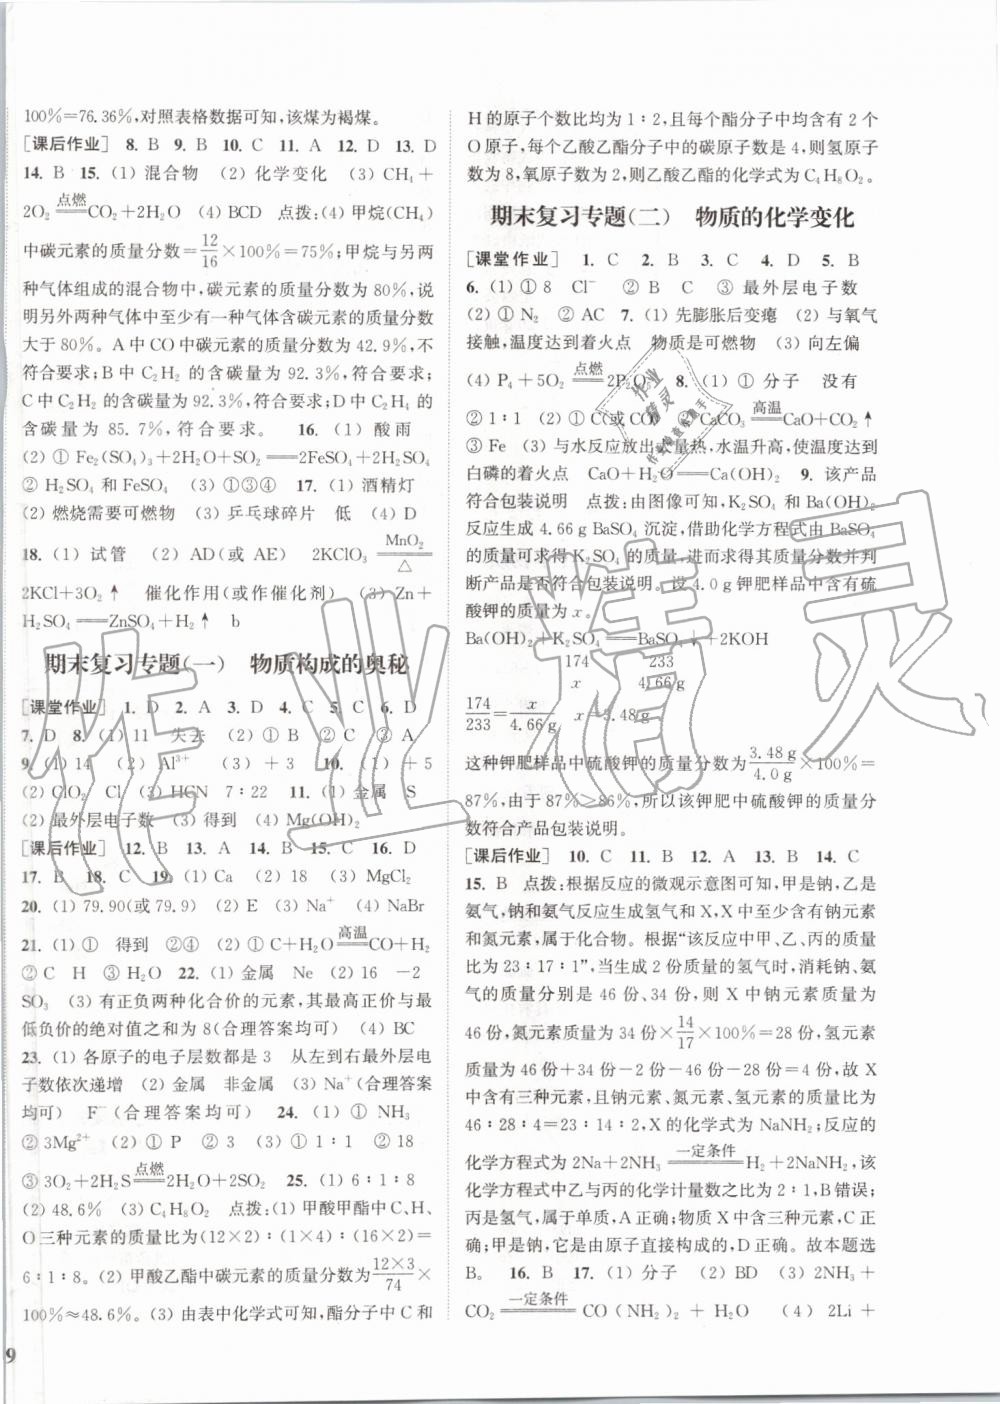 100%=76.36%,对照表格数据可知,该煤为褐煤。
[课后作业] 8. B 9. B 10. C 11. A 12. D 13. D
14. B 15. (1) 混合物 (2) 化学变化 (3) CH₄+
2O₂ =点燃= CO₂+2H₂O (4) BCD 点拨:(4) 甲烷(CH₄)
中碳元素的质量分数=12/16×100%=75%;甲烷与另两
种气体组成的混合物中,碳元素的质量分数为80%,说
明另外两种气体中至少有一种气体含碳元素的质量分数
大于80%。A中CO中碳元素的质量分数为42.9%,不
符合要求;B中C₂H₂的含碳量为92.3%,符合要求;
C中C₂H₂的含碳量为92.3%,符合要求;D中C₂H₄的
含碳量为85.7%,符合要求。 16. (1) 酸雨
(2) ① Fe₂(SO₄)₃+2H₂O+SO₂══2FeSO₄+2H₂SO₄
② H₂SO₄和FeSO₄ (3) ①③④ 17. (1) 酒精灯
(2) 燃烧需要可燃物 (3) 乒乓球碎片 低 (4) D
18. (1) 试管 (2) AD(或AE) 2KClO₃ =MnO₂/△=
2KCl+3O₂↑ 催化作用(或作催化剂) (3) Zn+
H₂SO₄══ZnSO₄+H₂↑ b
期末复习专题(一) 物质构成的奥秘
[课堂作业] 1. D 2. A 3. D 4. C 5. C 6. D
7. D 8. (1) 11 失去 (2) ① B ② D ③ A
9. (1) 14 (2) Al³⁺ (3) +3 10. (1) +5
(2) ClO₂ Cl (3) HCN 7∶22 11. (1) 金属 S
(2) 最外层电子数 (3) 得到 (4) Mg(OH)₂
[课后作业] 12. B 13. A 14. B 15. C 16. D
17. B 18. C 19. (1) Ca (2) 18 (3) MgCl₂
20. (1) 79.90(或79.9) (2) E (3) Na⁺ (4) NaBr
21. (1) ① 得到 ②④ (2) ① C+H₂O =高温= CO+H₂
② C H ③ H₂O 22. (1) 金属 Ne (2) 16 -2
SO₃ (3) 有正负两种化合价的元素,其最高正价与最
低负价的绝对值之和为8(合理答案均可) (4) BC
23. (1) 各原子的电子层数都是3 从左到右最外层电
子数依次递增 (2) 金属 非金属 (3) Na⁺(合理答案
均可) F⁻(合理答案均可) 24. (1) ① NH₃
② 3Mg²⁺ (2) ① P ② S (3) ① 1∶1 ② 18
③ 3O₂+2H₂S =点燃= 2H₂O+2SO₂ 25. (1) 6∶1∶8
(2) 48.6% (3) C₄H₈O₂ 点拨:(1) 甲酸甲酯中C、H、
O三种元素的质量比为(12×2)∶(1×4)∶(16×2)=
6∶1∶8。(2) 甲酸乙酯中碳元素的质量分数为12×3/74×
100%≈48.6%。(3) 由表中化学式可知,酯分子中C和
9
H的原子个数比均为1∶2,且每个酯分子中均含有2个
O原子,每个乙酸乙酯分子中的碳原子数是4,则氢原子
数为8,氧原子数为2,则乙酸乙酯的化学式为C₄H₈O₂。
期末复习专题(二) 物质的化学变化
[课堂作业] 1. C 2. B 3. C 4. D 5. B
6. (1) ① 8 Cl⁻ ② B C ③ 最外层电子数
(2) ① N₂ ② AC 7. (1) 先膨胀后变瘪 (2) 与氧气
接触,温度达到着火点 物质是可燃物 (3) 向左偏
(4) P₄+5O₂ =点燃= 2P₂O₅ 8. (1) ① 分子 没有
② 1∶1 (2) ① C(或CO) ② CaCO₃ =高温= CaO+CO₂↑
③ Fe (3) 与水反应放出大量热,水温升高,使温度达到
白磷的着火点 CaO+H₂O══Ca(OH)₂ 9. 该产品
符合包装说明 点拨:由图像可知,K₂SO₄和Ba(OH)₂
反应生成4.66 g BaSO₄沉淀,借助化学方程式由BaSO₄
的质量可求得K₂SO₄的质量,进而求得其质量分数并判
断产品是否符合包装说明。设4.0 g钾肥样品中含有硫
酸钾的质量为x。
Ba(OH)₂+K₂SO₄══BaSO₄↓+2KOH
174 233
x 4.66 g
174/233=x/4.66 g x=3.48 g
这种钾肥样品中硫酸钾的质量分数为3.48 g/4.0 g×100%=
87%,由于87%>86%,所以该钾肥中硫酸钾的质量分
数符合产品包装说明。
[课后作业] 10. C 11. B 12. A 13. B 14. C
15. B 点拨:根据反应的微观示意图可知,甲是钠,乙是
氨气,钠和氨气反应生成氢气和X,X中至少含有钠元素
和氮元素,属于化合物。根据“该反应中甲、乙、丙的质量
比为23∶17∶1”,当生成2份质量的氢气时,消耗钠、氨
气的质量分别是46份、34份,则X中钠元素质量为
46份,氮元素质量为34份×14/17×100%=28份,氢元素
质量为46份+34份-2份-46份-28份=4份,故X
中含有三种元素,且钠元素、氮元素、氢元素的质量比为
46∶28∶4=23∶14∶2,X的化学式为NaNH₂;反应的
化学方程式为2Na+2NH₃ =一定条件= H₂+2NaNH₂,该
化学方程式中乙与丙的化学计量数之比为2∶1,B错误;
丙是氢气,属于单质,A正确;物质X中含三种元素,C正
确;甲是钠,它是由原子直接构成的,D正确。故本题选
B。 16. B 17. (1) 分子 (2) BD (3) 2NH₃+
CO₂ =一定条件= CO(NH₂)₂+H₂O (4) 2Li+
作业精灵
作业精灵